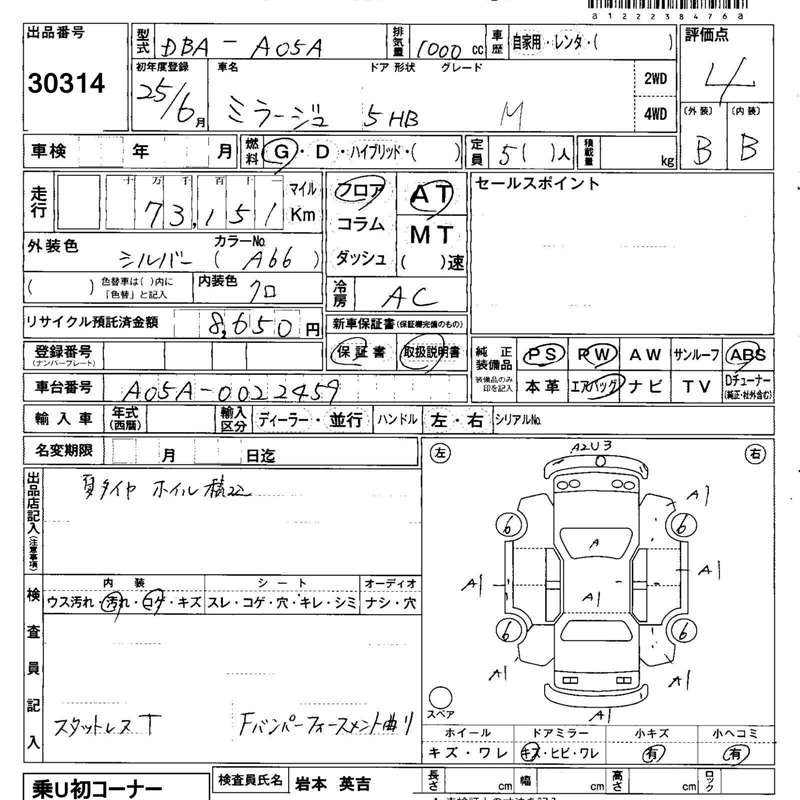 a12223847 6a
出品番号
30314
型式 DBA-A05A 排気量 1000 cc 車歴 自家用・レンタ・( )
評価点 4
初年度登録 25/6月
車名 ミラージュ
ドア 形状 5HB
グレード M
2WD
4WD
(外装) B (内装) B
車検 年 月
燃料 G・D・ハイブリッド・( )
定員 5( )人
積載量 kg
走行 十万千百十一
73,151
マイル
Km
フロア
コラム
ダッシュ
AT
MT
( )速
セールスポイント
外装色 シルバー カラーNo. (A66)
( ) 色替車は( )内に「色替」と記入
内装色 クロ
冷房 AC
リサイクル預託済金額 8,650 円
新車保証書(保証継完備のもの)
保証書 取扱説明書
登録番号
(ナンバープレート)
純正装備品
装備品のみ印を記入
PS PW AW サンルーフ ABS
本革 エアバッグ ナビ TV Dチューナー
(純正・社外含む)
車台番号 A05A-0022459
輸入車 年式(西暦) 輸入区分 ディーラー・並行 ハンドル 左・右 シリアルNo.
名変期限 月 日迄
出品店記入(注意事項)
夏タイヤ ホイル積込
左 右
A2U3
A1
6 6
A
A1 A1 A1
6 6
A1 A1
A1
スペア
検査員記入
内装 シート オーディオ
ウス汚れ・汚れ・コゲ・キズ スレ・コゲ・穴・キレ・シミ ナシ・穴
スタットレスT Fバンパーフォースメント曲り
ホイール ドアミラー 小キズ 小ヘコミ
キズ・ワレ キズ・ヒビ・ワレ 有 有
乗U初コーナー
検査員氏名 岩本 英吉
長さ cm 幅 cm 高さ cm ロック